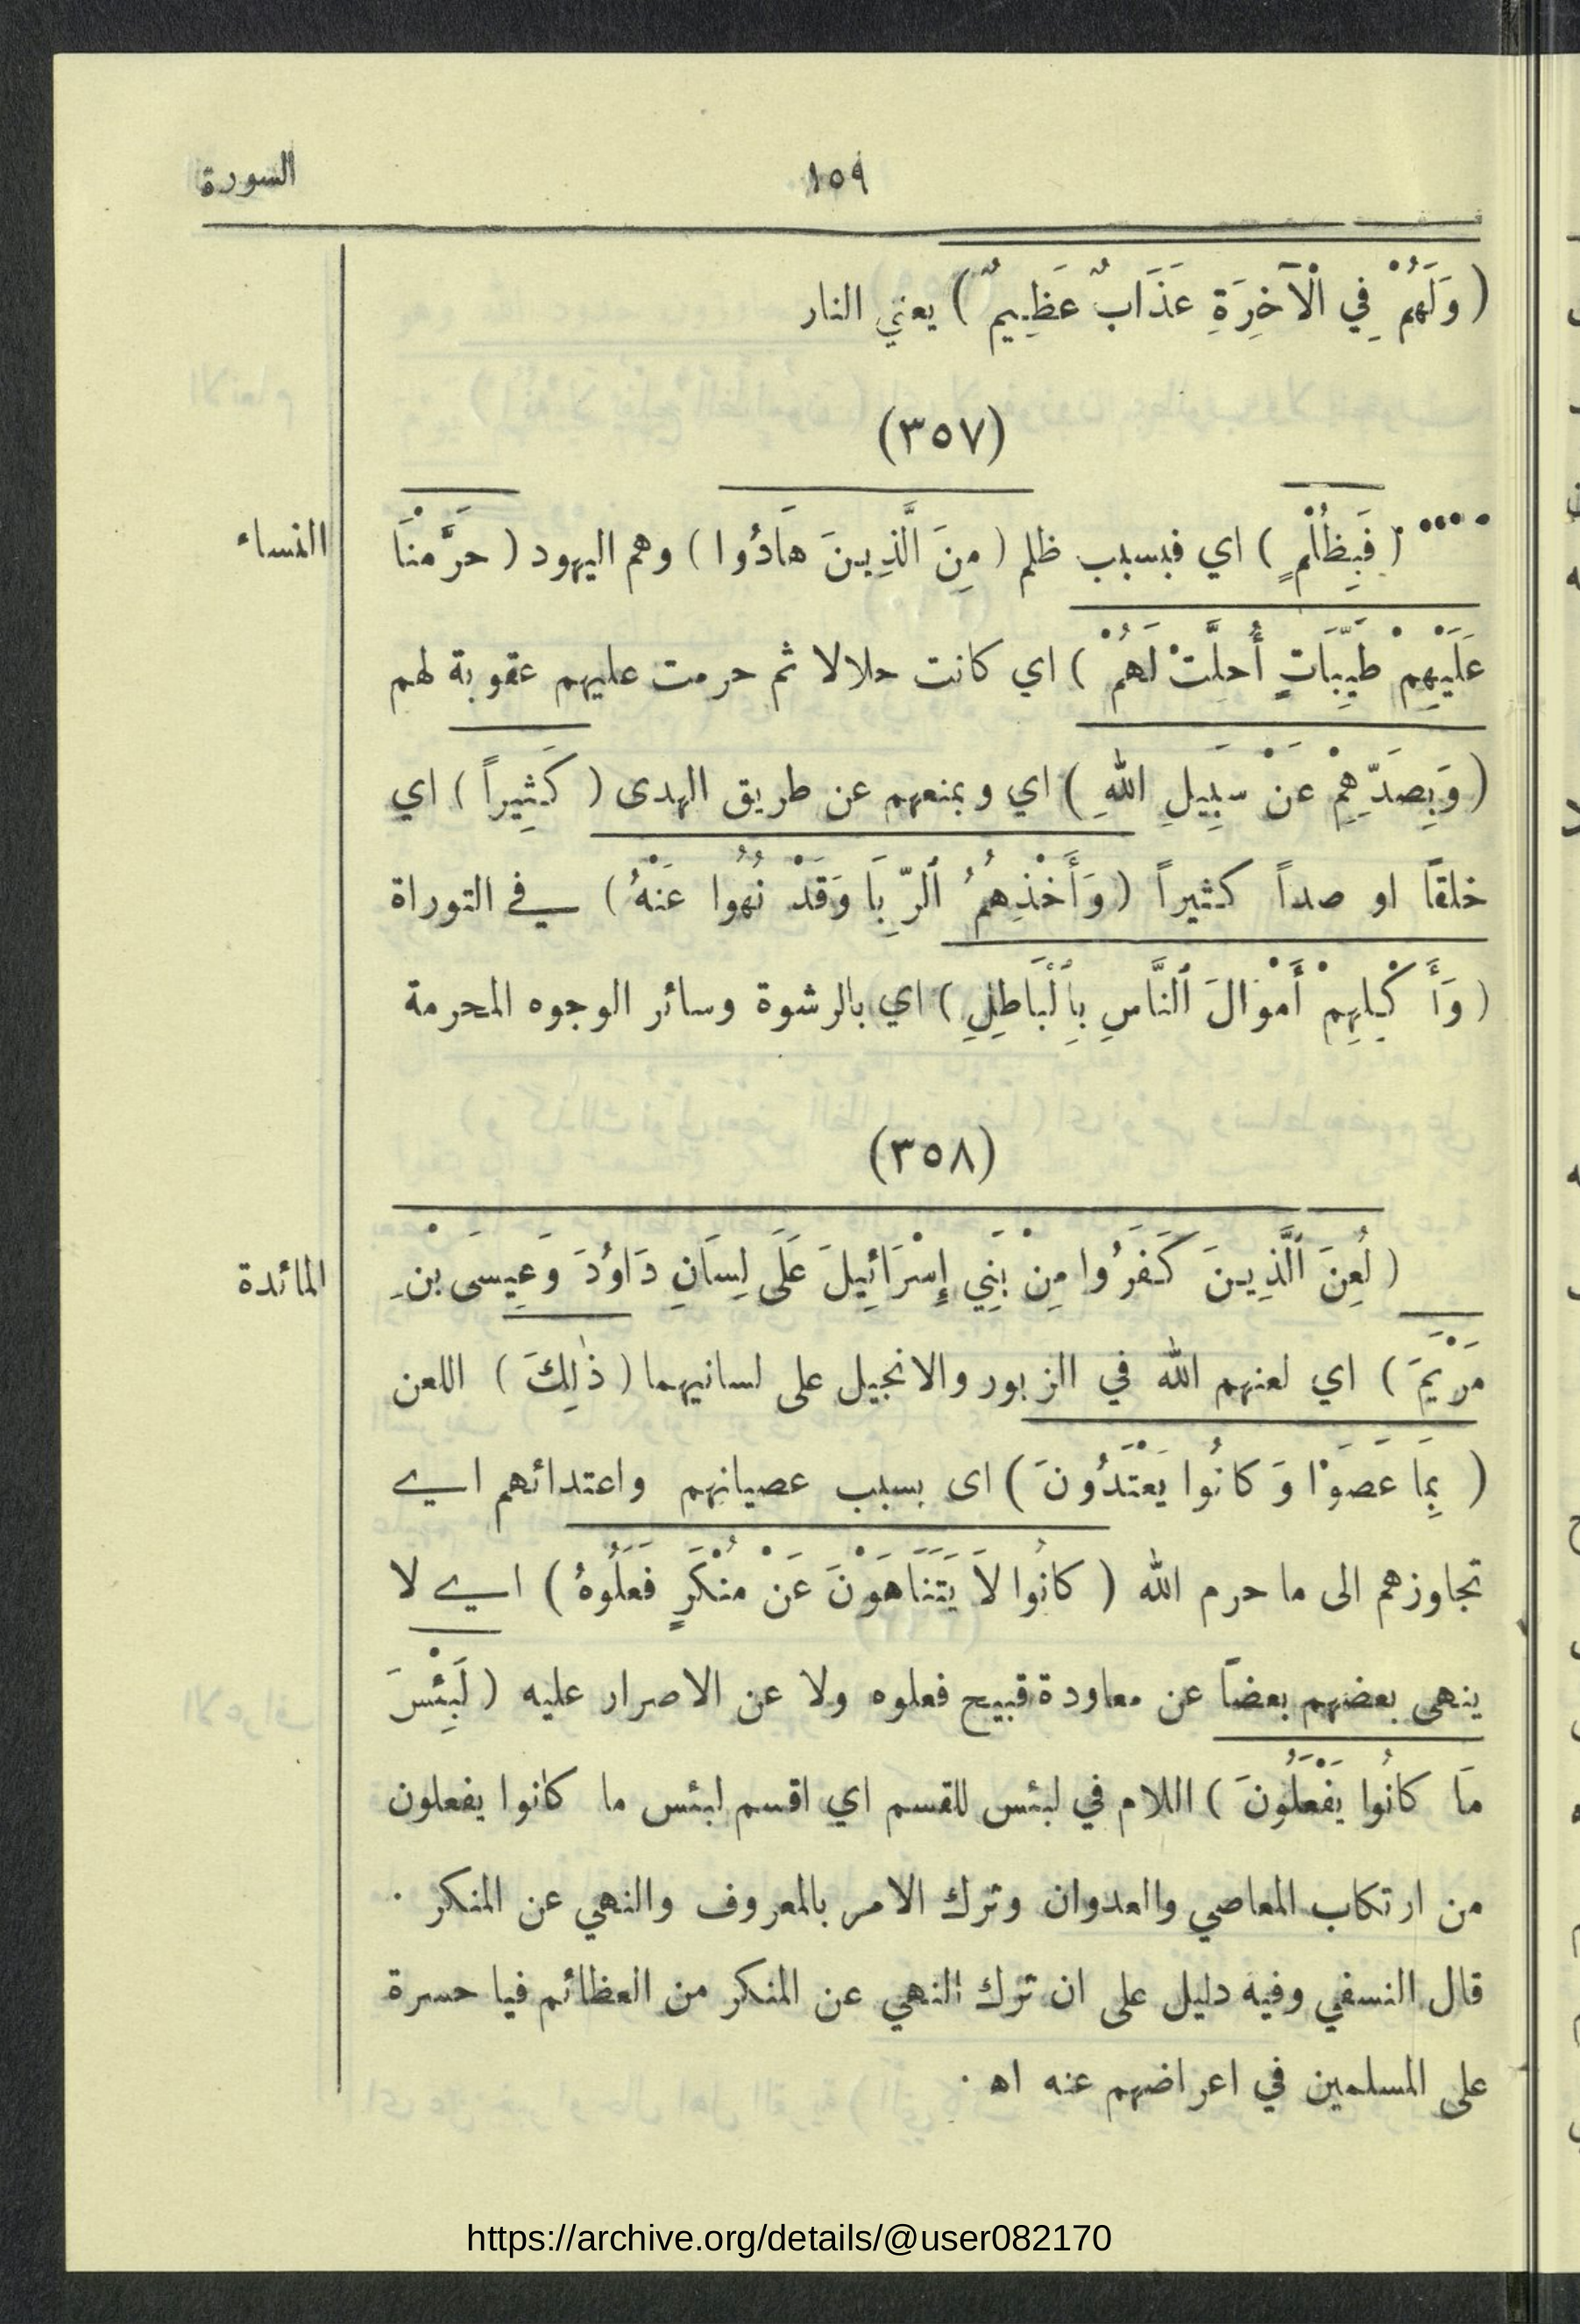 ١٥٩ السورة
( وَلَهُمْ فِي الْآخِرَةِ عَذَابٌ عَظِيمٌ ) يعني النار
(٣٥٧)
النساء
•••• ( فَبِظُلْمٍ ) اي فبسبب ظلم ( مِنَ الَّذِينَ هَادُوا ) وهم اليهود ( حَرَّمْنَا
عَلَيْهِمْ طَيِّبَاتٍ أُحِلَّتْ لَهُمْ ) اي كانت حلالا ثم حرمت عليهم عقوبة لهم
( وَبِصَدِّهِمْ عَنْ سَبِيلِ اللهِ ) اي وبمنعهم عن طريق الهدى ( كَثِيراً ) اي
خلقاً او صداً كثيراً ( وَأَخْذِهِمُ ٱلرِّبَا وَقَدْ نُهُوا عَنْهُ ) في التوراة
( وَأَكْلِهِمْ أَمْوَالَ ٱلنَّاسِ بِٱلْبَاطِلِ ) اي بالرشوة وسائر الوجوه المحرمة
(٣٥٨)
المائدة
( لُعِنَ ٱلَّذِينَ كَفَرُوا مِنْ بَنِي إِسْرَائِيلَ عَلَى لِسَانِ دَاوُدَ وَعِيسَى بْنِ
مَرْيَمَ ) اي لعنهم الله في الزبور والانجيل على لسانيهما ( ذٰلِكَ ) اللعن
( بِمَا عَصَوْا وَكَانُوا يَعْتَدُونَ ) اى بسبب عصيانهم واعتدائهم اي
تجاوزهم الى ما حرم الله ( كَانُوا لَا يَتَنَاهَوْنَ عَنْ مُنْكَرٍ فَعَلُوهُ ) اي لا
ينهى بعضهم بعضاً عن معاودة قبيح فعلوه ولا عن الاصرار عليه ( لَبِئْسَ
مَا كَانُوا يَفْعَلُونَ ) اللام في لبئس للقسم اي اقسم لبئس ما كانوا يفعلون
من ارتكاب المعاصي والعدوان وترك الامر بالمعروف والنهي عن المنكر .
قال النسفي وفيه دليل على ان ترك النهي عن المنكر من العظائم فيا حسرة
على المسلمين في اعراضهم عنه اه .
https://archive.org/details/@user082170